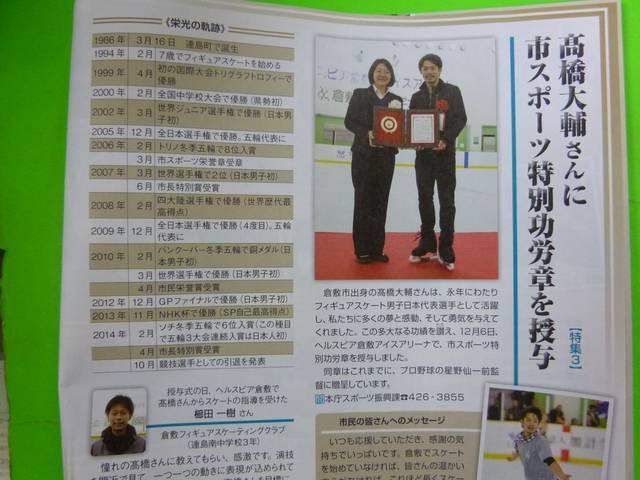 髙橋大輔さんに
市スポーツ特別功労章を授与
【特集3】
《栄光の軌跡》
1986年 3月16日 連島町で誕生
1994年 2月 7歳でフィギュアスケートを始める
1999年 4月 初の国際大会トリグラフトロフィーで
優勝
2000年 2月 全国中学校大会で優勝(県勢初)
2002年 3月 世界ジュニア選手権で優勝(日本男
子初)
2005年 12月 全日本選手権で優勝。五輪代表に
2006年 2月 トリノ冬季五輪で8位入賞
3月 市スポーツ栄誉章受章
2007年 3月 世界選手権で2位(日本男子初)
6月 市長特別賞受賞
2008年 2月 四大陸選手権で優勝(世界歴代最
高得点)
2009年 12月 全日本選手権で優勝(4度目)。五輪
代表に
2010年 2月 バンクーバー冬季五輪で銅メダル(日
本男子初)
3月 世界選手権で優勝(日本男子初)
4月 市民栄誉賞受賞
2012年 12月 GPファイナルで優勝(日本男子初)
2013年 11月 NHK杯で優勝(SP自己最高得点)
2014年 2月 ソチ冬季五輪で6位入賞(この種目
で五輪3大会連続入賞は日本人初)
4月 市長特別賞受賞
10月 競技選手としての引退を発表
倉敷市出身の髙橋大輔さんは、永年にわたり
フィギュアスケート男子日本代表選手として活躍
し、私たちに多くの夢と感動、そして勇気を与えて
くれました。この多大なる功績を讃え、12月6日、
ヘルスピア倉敷アイスアリーナで、市スポーツ特
別功労章を授与しました。
同章はこれまでに、プロ野球の星野仙一前監
督に贈呈しています。
問本庁スポーツ振興課☎426-3855
授与式の日、ヘルスピア倉敷で
髙橋さんからスケートの指導を受けた
櫛田 一樹さん
倉敷フィギュアスケーティングクラブ
(連島南中学校3年)
憧れの髙橋さんに教えてもらい、感激です。演技
を間近で見て、一つ一つの動きに表現が込められて
市民の皆さんへのメッセージ
いつも応援していただき、感謝の気
持ちでいっぱいです。倉敷でスケート
を始めていなければ、皆さんの温かい